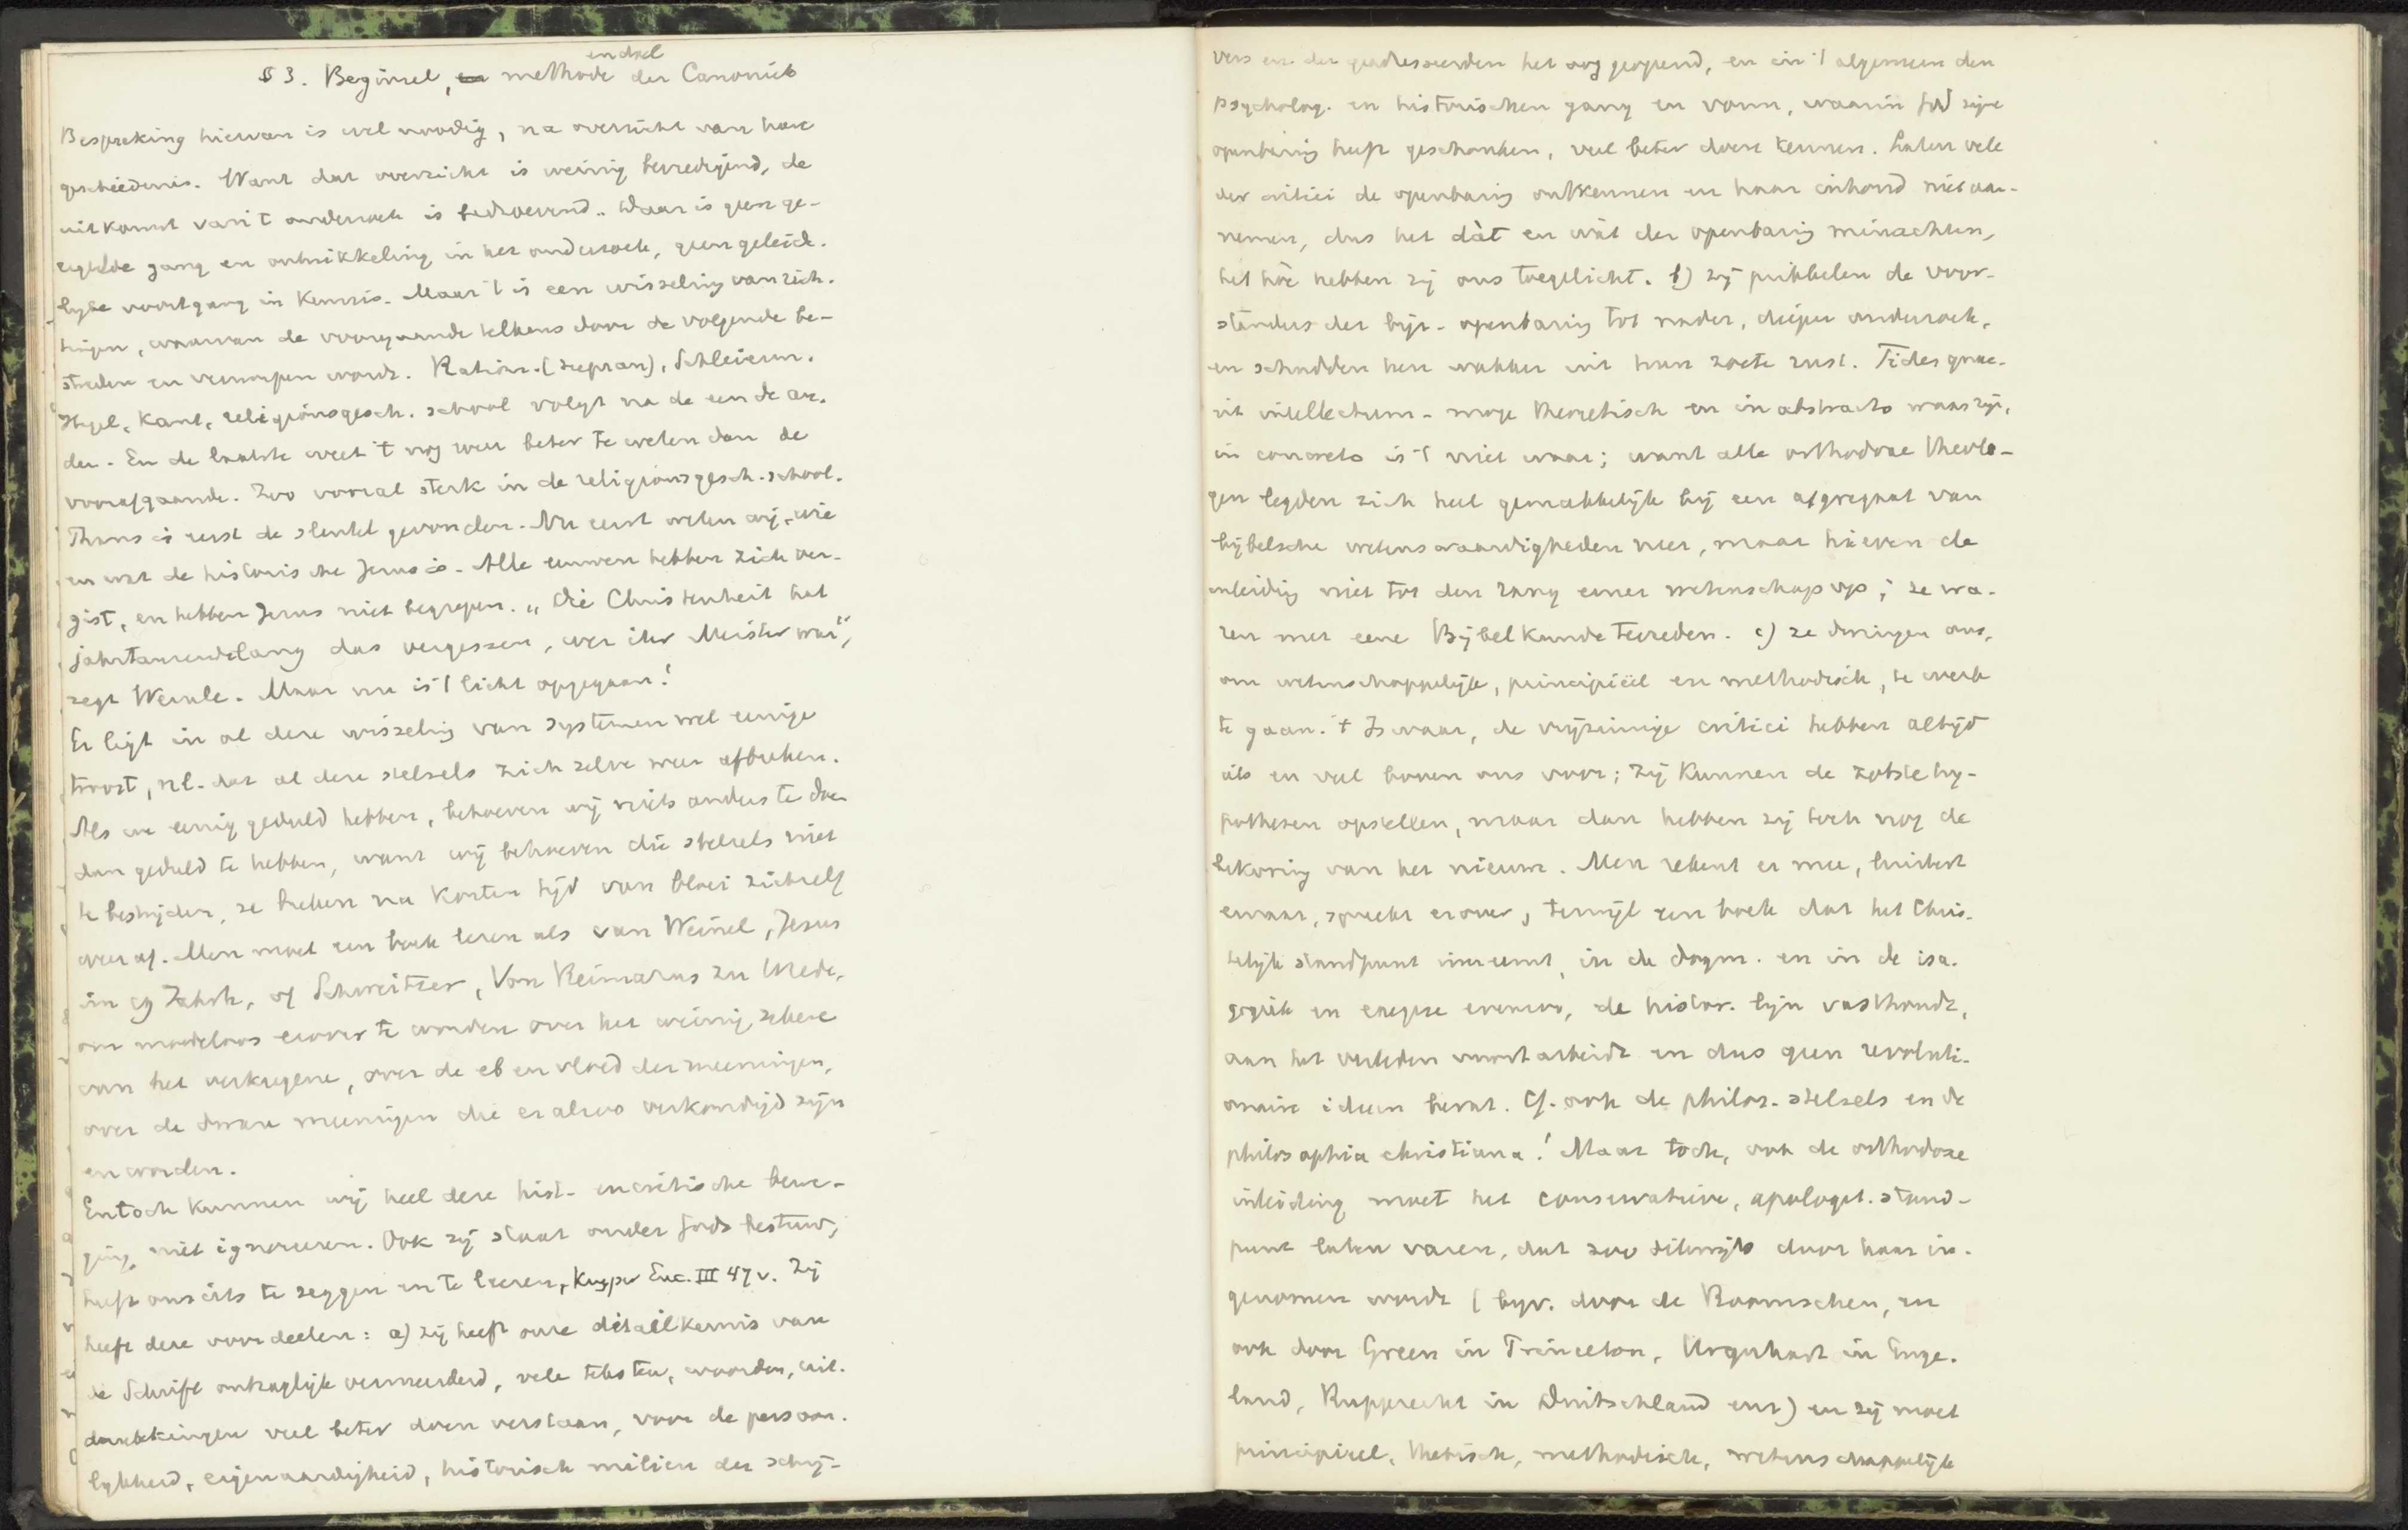 en doel
§ 3. Beginsel, en methode der Canoniek
Bespreking hiervan is wel noodig, na overzicht van hare
geschiedenis. Want dat overzicht is weinig bevredigend, de
uitkomst van 't onderzoek is bedroevend. Daar is geen ge-
regelde gang en ontwikkeling in het onderzoek, geen geleide-
lijke voortgang in kennis. Maar 't is een wisseling van rich-
tingen, waarvan de voorgaande telkens door de volgende be-
streden en verworpen wordt. Ration. (supran), Schleierm.
Hegel, Kant, religionsgesch. school volgt na de een de an-
der. En de laatste weet 't nog weer beter te weten dan de
voorafgaande. Zoo vooral sterk in de religionsgesch. school.
Thans is eerst de sleutel gevonden. Nu eerst weten wij, wie
en wat de historische Jezus is. Alle eeuwen hebben zich ver-
gist, en hebben Jezus niet begrepen. „Die Christenheit hat
jahrtausendelang das vergessen, wer ihr Meister war",
zegt Wernle. Maar nu is 't licht opgegaan!
Er ligt in al deze wisseling van systemen wel eenige
troost, nl. dat al deze stelsels zich zelve weer afbreken.
Als we eenig geduld hebben, behoeven wij niets anders te doen
dan geduld te hebben, want wij behoeven die stelsels niet
te bestrijden, ze breken na korten tijd van bloei zichzelf
weer af. Men moet een boek lezen als van Weinel, Jesus
im 19 Jahrh., of Schweitzer, Von Reimarus zu Wrede,
om moedeloos erover te worden over het weinig zekere
van het verkregene, over de eb en vloed der meeningen,
over de dwaze meeningen die er alzoo verkondigd zijn
en worden.
En toch kunnen wij heel deze hist. en critische bewe-
ging niet ignoreeren. Ook zij staat onder Gods bestuur,
heeft ons iets te zeggen en te leeren, Kuyper Enc. III 47 v. Zij
heeft deze voordeelen: a) zij heeft onze detailkennis van
de Schrift ontzaglijk vermeerderd, vele teksten, woorden, uit-
drukkingen veel beter doen verstaan, voor de persoon-
lijkheid, eigenaardigheid, historisch milieu der schrij-
vers en der geadresseerden het oog geopend, en in 't algemeen den
psycholog. en historischen gang en vorm, waarin God zijne
openbaring heeft geschonken, veel beter doen kennen. Laten vele
der critici de openbaring ontkennen en haar inhoud niet aan-
nemen, dus het dàt en wàt der openbaring minachten,
het hòe hebben zij ons toegelicht. b) zij prikkelen de voor-
standers der bijz. openbaring tot nader, dieper onderzoek,
en schudden hen wakker uit hun zoete rust. Fides quae-
rit intellectum - moge theoretisch en in abstracto waar zijn,
in concreto is 't niet waar; want alle orthodoxe theolo-
gen legden zich heel gemakkelijk bij een aggregaat van
bijbelsche wetenswaardigheden neer, maar hieven de
inleiding niet tot den rang eener wetenschap op; ze wa-
ren met eene Bijbelkunde tevreden. c) ze dwingen ons,
om wetenschappelijk, principiëel en methodisch, te werk
te gaan. 't Is waar, de vrijzinnige critici hebben altijd
iets en veel boven ons voor; zij kunnen de zotste hy-
pothesen opstellen, maar dan hebben zij toch nog de
bekoring van het nieuwe. Men rekent er mee, luistert
ernaar, spreekt erover, terwijl een boek dat het Chris-
telijk standpunt inneemt, in de dogm. en in de isa-
gogiek en exegese evenzoo, de histor. lijn vasthoudt,
aan het verleden voortarbeidt en dus geen revoluti-
onaire ideeen bevat. Cf. ook de philos. stelsels en de
philosophia christiana! Maar toch, ook de orthodoxe
inleiding moet het conservatieve, apologet. stand-
punt laten varen, dat zoo dikwijls door haar in-
genomen wordt (bijv. door de Roomschen, en
ook door Green in Princeton, Urquhart in Enge-
land, Rupprecht in Duitschland enz) en zij moet
principieel, thetisch, methodisch, wetenschappelijk